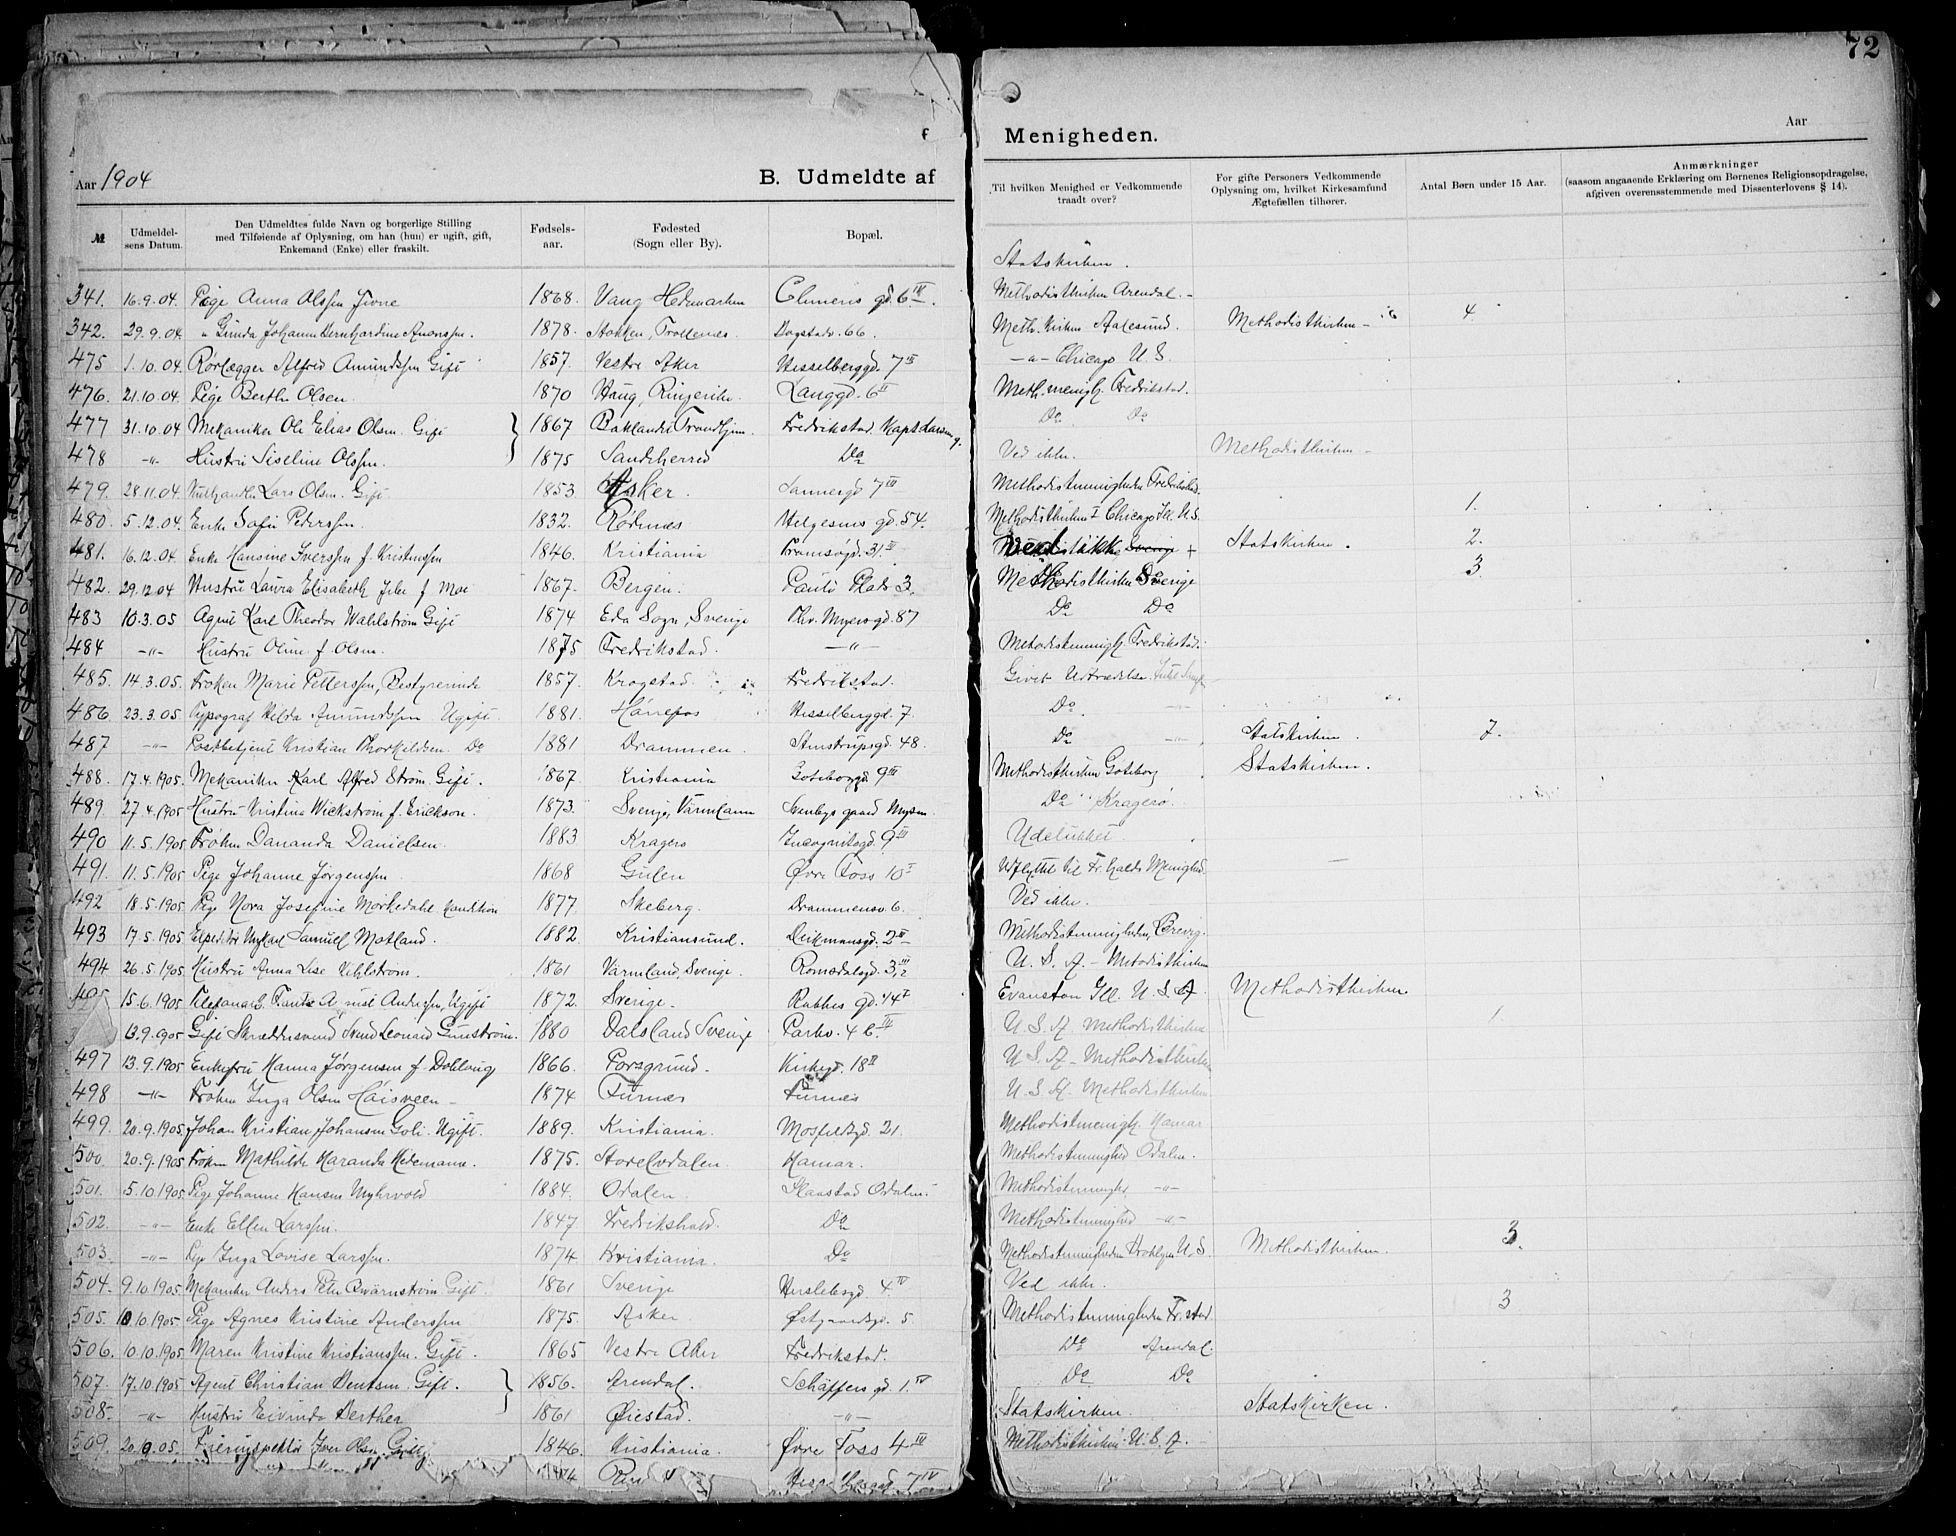 72
Aar 1904
B. Udmeldte af
№
Udmeldel-
sens Datum.
Den Udmeldtes fulde Navn og borgerlige Stilling
med Tilføiende af Oplysning, om han (hun) er ugift, gift,
Enkemand (Enke) eller fraskilt.
Fødsels-
aar.
Fødested
(Sogn eller By).
Bopæl.
341. 16.9.04. Pige Anna Olssen 1868. Vang Hedemarken gd. 6 IV.
342. 29.9.04. " Gunda Johanne Bernhardine 1878. Stokken, Tromøen 66.
475 1.10.04. Rørlægger Alfred Amundssen Gift 1857. Vestre Aker Hesselberggd. 7 III
476. 21.10.04. Pige Berthe Olsen. 1870 Haug, Ringerike. Langgd. 6 II
477 31.10.04 Mekaniker Ole Elias Olsen. Gift 1867 Baklandet Trondhjem. Fredrikstad.
478 -"- Hustru Olssen. 1875 Sandeherred Do
479. 28.11.04. Lars Olsen. Gift 1853 Asker. Sannergd 7 III
480. 5.12.04. Enke Sofie Pederssen. 1832. Rødenes Helgesens gd. 54.
481. 16.12.04. Enke Hansine Iverssen f. Kristenssen 1846. Kristiania Tromsøgd. 31 II
482. 29.12.04 Hustru Laura Elisabeth f Moe 1867. Bergen. Pauls Plads 3.
483 10.3.05 Agent Karl Theodor Wahlstrøm Gift 1874 Eda Sogn, Sverige Thv. Myersgd. 87
484 -"- Hustru Oline f. Olsen. 1875 Fredrikstad. -"-
485. 14.3.05. Frøken Marie Petterssen, Bestyrerinde 1857. Krogstad. Fredrikstad.
486. 23.3.05. Typograf Hilda Amundssen Ugift. 1881. Hesselberggd. 7.
487 -"- Postbetjent Kristian Thorkildsen. Do 1881 Drammen. Stenstrupsgd. 48.
488. 17.4.1905. Mekaniker Karl Alfred Strøm. Gift. 1867. Kristiania Goteborggd. 9 III
489. 27.4.1905 Hustru Kristina Wickstrøm f. Erickson. 1873. Sverige, Värmland Svenbys gaard Mysen
490 11.5.1905 Frøken Dananda Danielsen. 1883 Kragerø Incognitogd. 9 III
491. 11.5.1905 Pige Johanne Jørgenssen. 1868 Gulen Øvre Foss 10 I
492 18.5.1905 Pige Nora Josefine Mørkedahl. 1877. Skeberg. Drammensv. 6.
493 17.5.1905 Samuel Motland. 1882. Kristiansund. Deikmansgd. 2 II
494 26.5.1905 Hustru Anna Lise Uhlstrøm. 1861 Värmland, Sverige. Romsdalsgd. 3,2 III
495 15.6.1905 Anderssen, Ugift 1872. Sverige. Rabbes gd. 14 I
13.9.1905 Gift Leonard 1880 Dalsland Sverige Parkv. 46. IV
497 13.9.1905 Enkefru Hanna Jørgensen f. Dahlaug 1866. Porsgrund. Kirkegd. 18 II
498 -"- Frøken Inga Olsen Høisveen 1874 Furnes Furnes
499. 20.9.1905 Johan Kristian Johansen Goli. Ugift. 1889. Kristiania. 21.
500. 20.9.1905 Frøken Mathilde Haranda Hedemann. 1875. Storelvdalen. Hamar.
501. 5.10.1905 Pige Johanne Hansen Myhrvold 1884. Odalen. Skaastad Odalen.
502. -"- Enke Ellen Larssen. 1847. Fredrikshald. Do
503. -"- Pige Inga Lovise Larssen. 1874 Kristiania. Do
504. 9.10.1905 Mekaniker Anders Peter Gift. 1861 Sverige Herslebsgd 4 IV
505. 10.10.1905. Pige Agnes Kristine Anderssen 1875. Asker. Østgaardsgd. 5
506. 10.10.1905 Maren Kristine Kristianssen. Gift. 1865 Vestre Aker Fredrikstad.
507. 17.10.1905 Agent Christian Gift. 1856. Arendal. Schäffers gd. 1. IV
508. -"- Hustru Eivinda Berthea 1861 Øiestad. -"-
509. 20.9.05. Iver Olsen, Gift 1846. Kristiania. Øvre Foss 4 III
7 IV
Menigheden.
Aar
Til hvilken Menighed er Vedkommende
traadt over?
For gifte Personers Vedkommende
Oplysning om, hvilket Kirkesamfund
Ægtefællen tilhører.
Antal Børn under 15 Aar.
Anmærkninger
(saasom angaaende Erklæring om Børnenes Religionsopdragelse,
afgiven overensstemmende med Dissenterlovens § 14).
Statskirken.
Methodistkirken Arendal.
Meth. kirken Aalesund. Methodistkirken 4.
-"- Chicago U. S.
Meth. menigh. Fredrikstad.
Do Do
Ved ikke. Methodistkirken
Methodistmenigheden Fredrikshald.
Methodistkirken I Chicago Ill. U. S. 1.
ved ikke Sverige + Statskirken. 2.
Methodistkirken Sverige 3.
Do Do
Metodistmenigh. Fredrikstad.
Givet Udtrædelse
Do -"-
Do -"- Statskirken. 7.
Methodistkirken Gøteborg Statskirken.
Do Kragerø.
Udelukket
Udflyttet til Fr. halds Menighed.
Ved ikke.
Methodistmenigheden, Brevig.
U. S. A. - Metodistkirken
Evanston Ill. U. S. A. Methodistkirken.
U. S. A. Methodistkirken 1.
U. S. A. - Methodistkirken
U. S. A. Methodistkirken
Methodistmenigh. Hamar
Methodistmenighed Odalen.
Methodistmenighed -"-
Methodistmenighed -"-
Methodistmenigheden Broklyn U. S. Methodistkirken. 3.
Ved ikke.
Methodistmenigheden Fr. stad 3
Do Arendal.
Do Do
Statskirken. Statskirken.
Methodistkirken. U. S. A.